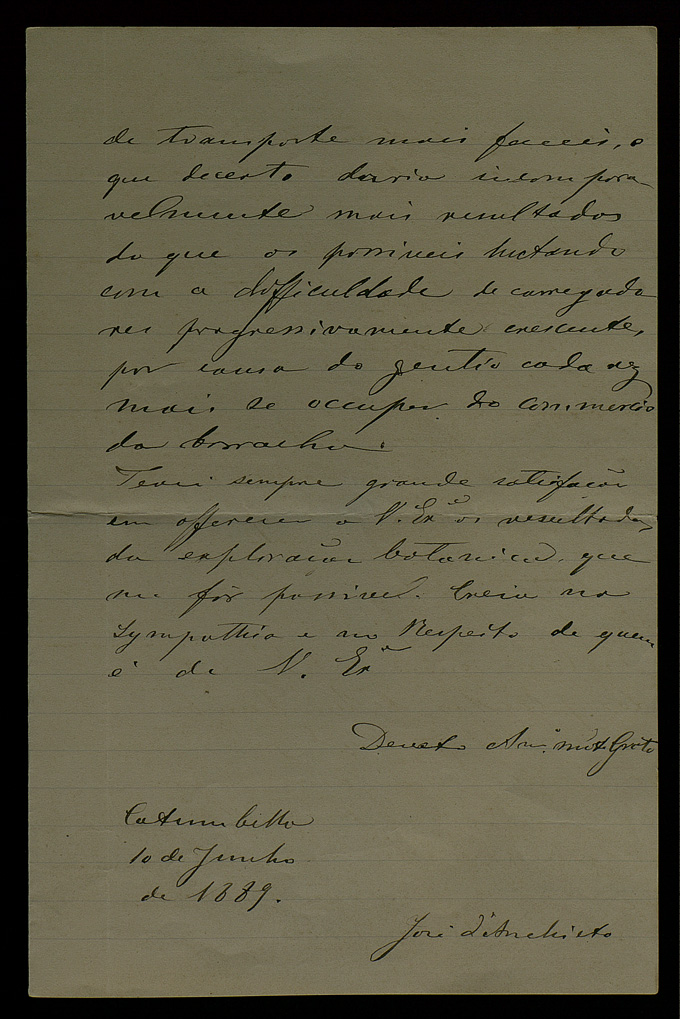 de transporte mais faceis, o
que decerto daria incompora
velmente mais resultados
do que os possiveis luctando
com a difficuldade de carregado
res progressivamente crescente,
por causa do gentio cada vez
mais se occupar do commercio
da borracha.
Terei sempre grande satisfação
em offerecer a V. Exª os resultados
da exploração botanica, que
me fôr possivel. Creia na
sympathia e no Respeito de quem
é de V. Exª
Devoto Amº mtº Grato
Catumbella
10 de Junho
de 1889.
José d'Anchieta